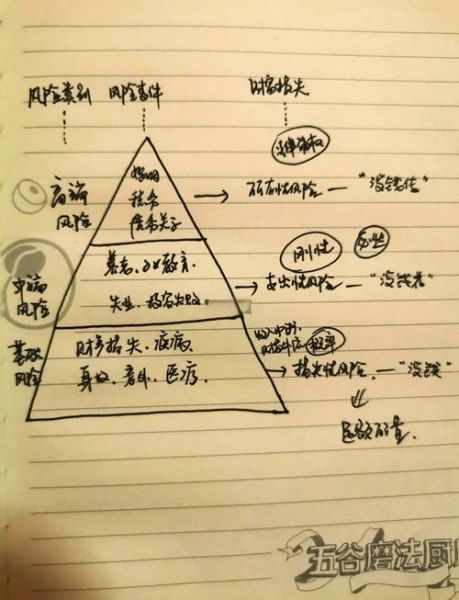 风险类别 风险事件 财富损失
高端风险
婚姻
税务
债务关系
所有性风险 — "没钱传"
中端风险
养老、子女教育、
失业、投资失败
刚性
支出性风险 — "没钱养"
基础风险
财产损失、疾病、
身故、意外、医疗、
收入中断、
概率
损失性风险 — "没钱"
足额配置
五谷磨法厨